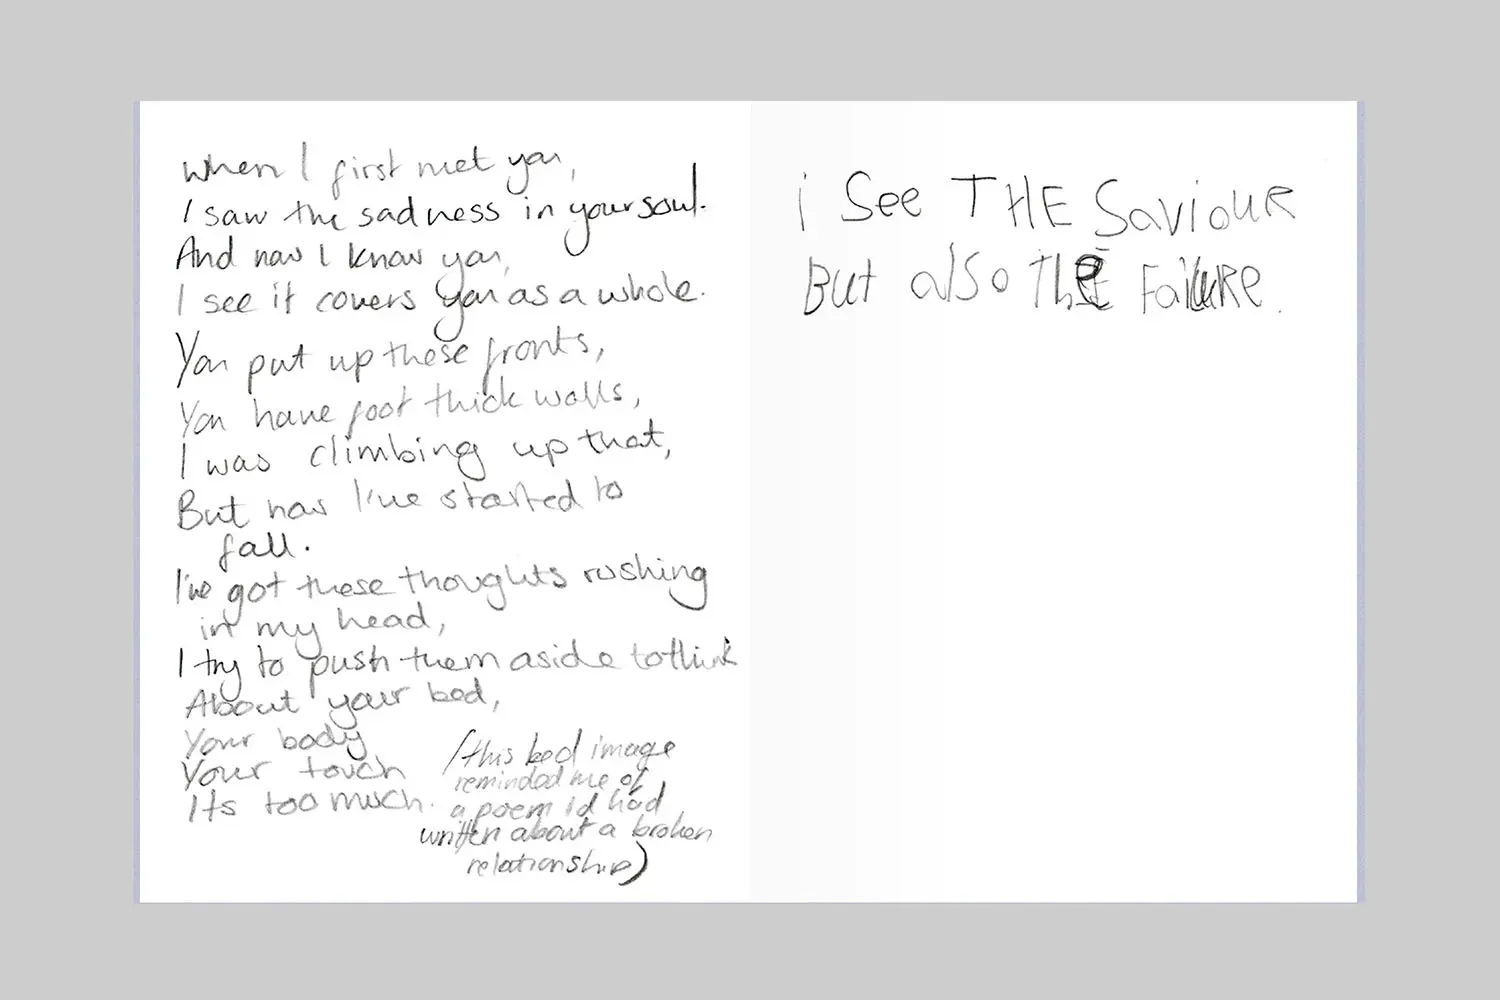 When I first met you,
I saw the sadness in your soul.
And now I know you,
I see it covers you as a whole.
You put up these fronts,
You have foot thick walls,
I was climbing up that,
But now I've started to
fall.
I've got these thoughts rushing
in my head,
I try to push them aside to think
About your bed,
Your body
Your touch
Its too much.
(this bed image
reminded me of
a poem id had
written about a broken
relationship)
i See THE SaviouR
But also The FailuRe.